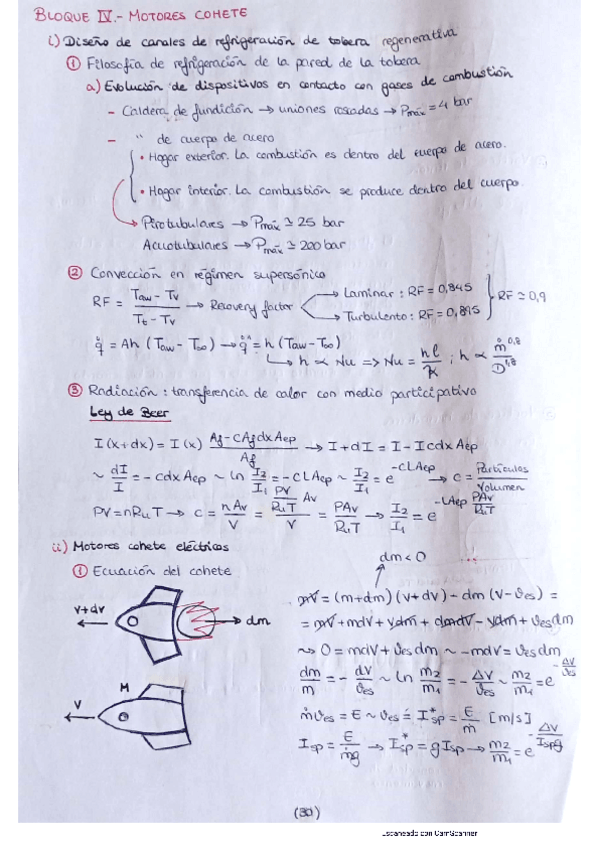 BLOQUE IV.- MOTORES COHETE
i) Diseño de canales de refrigeración de tobera regenerativa
① Filosofía de refrigeración de la pared de la tobera
a) Evolución de dispositivos en contacto con gases de combustión
- Caldera de fundición → uniones roscadas → Pmáx = 4 bar
- " de cuerpo de acero
• Hogar exterior. La combustión es dentro del cuerpo de acero.
• Hogar interior. La combustión se produce dentro del cuerpo.
Pirotubulares → Pmáx ≃ 25 bar
Acuotubulares → Pmáx ≃ 200 bar
② Convección en régimen supersónico
RF = (Taw - Tv)/(Tt - Tv) → Recovery factor
Laminar: RF = 0,845
Turbulento: RF = 0,895
RF ≃ 0,9
q̇ = Ah (Taw - T∞) → q̇'' = h (Taw - T∞)
h ∝ Nu => Nu = hl/k ; h ∝ ṁ^0,8/D^1,8
③ Radiación: transferencia de calor con medio participativo
Ley de Beer
I(x+dx) = I(x) (Af - CAfdxAep)/Af → I + dI = I - IcdxAep
~ dI/I = -cdxAep ~ ln I2/I1 = -CLAep ~ I2/I1 = e^-CLAep → c = Partículas/Volumen
PV = nRuT → c = nAv/V = (PV/RuT Av)/V = PAv/RuT → I2/I1 = e^-LAep PAv/RuT
ii) Motores cohete eléctricos
① Ecuación del cohete
dm < 0
V+dV
dm
M
V
mV = (m+dm)(V+dV) - dm(V-Ves) =
= mV + mdV + Vdm + dmdV - Vdm + Vesdm
~> 0 = mdV + Vesdm ~ -mdV = Vesdm
dm/m = - dV/Ves ~ ln m2/m1 = - ΔV/Ves ~ m2/m1 = e^-ΔV/Ves
ṁVes = E ~ Ves = I*sp = E/ṁ [m/s]
Isp = E/ṁg → I*sp = gIsp → m2/m1 = e^-ΔV/Ispg
(30)
Escaneado con CamScanner